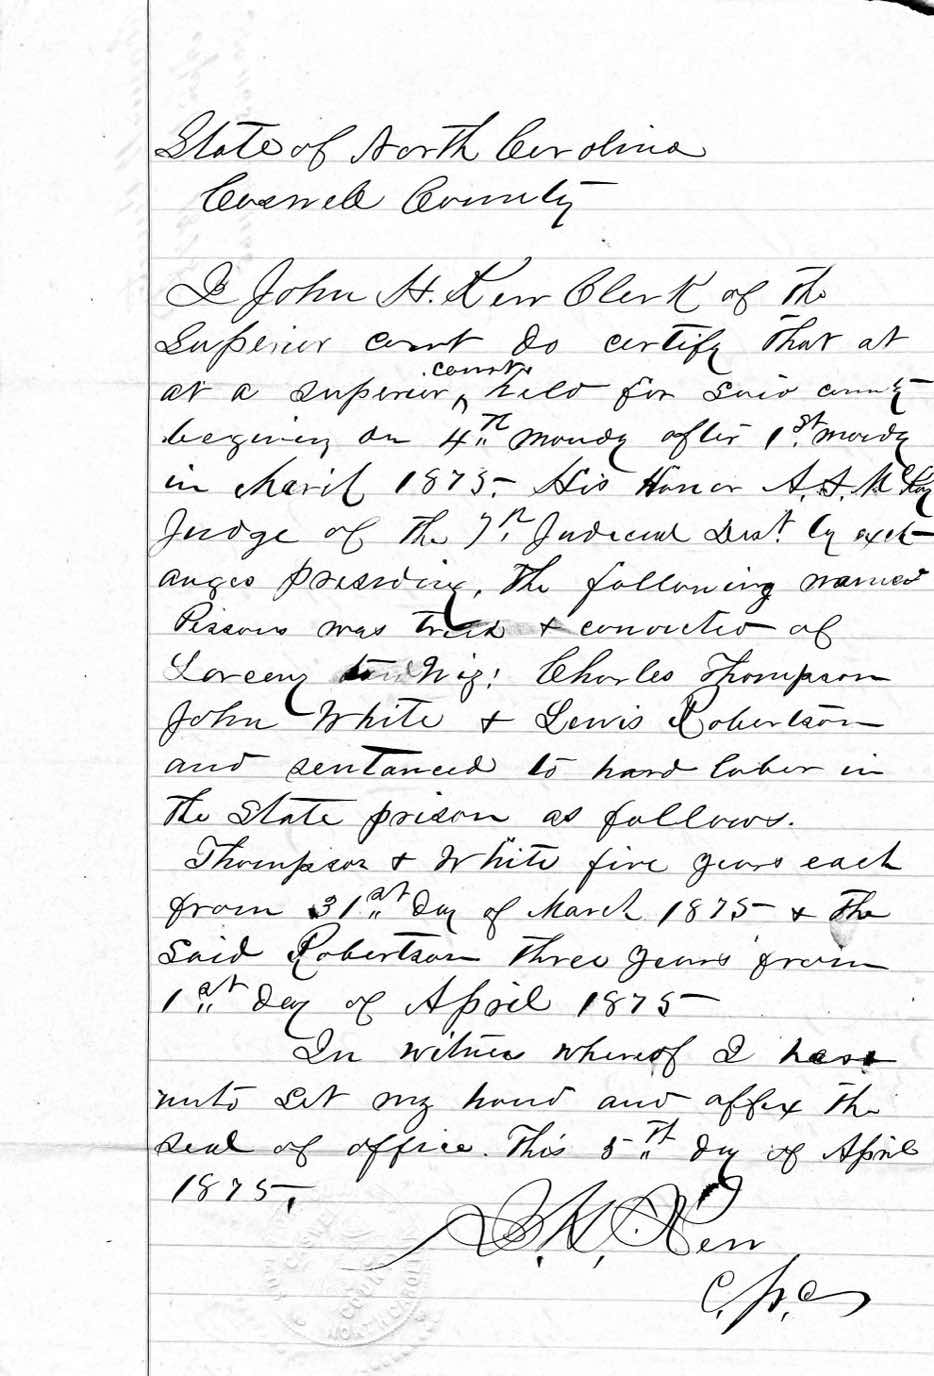 State of North Carolina
Caswell County
I John H. Kerr Clerk of the
Superior court do certify that at
at a superior court held for said county
begining on 4th Monday after 1st Monday
in March 1875. His Honor A. A. McKoy
Judge of the 7th Judicial Dist. by exch-
anges presiding, the following named
Persons was tried & convicted of
Larceny Viz: Charles Thompson
John White & Lewis Robertson
and sentanced to hard labor in
the State prison as follows.
Thompson & White five years each
from 31st day of March 1875 & the
said Robertson three years from
1st day of April 1875
In witness whereof I have
unto set my hand and affix the
seal of office. This 5th day of April
1875.
J. H. Kerr
C.S.C.
COUNTY
NORTH CAROLINA